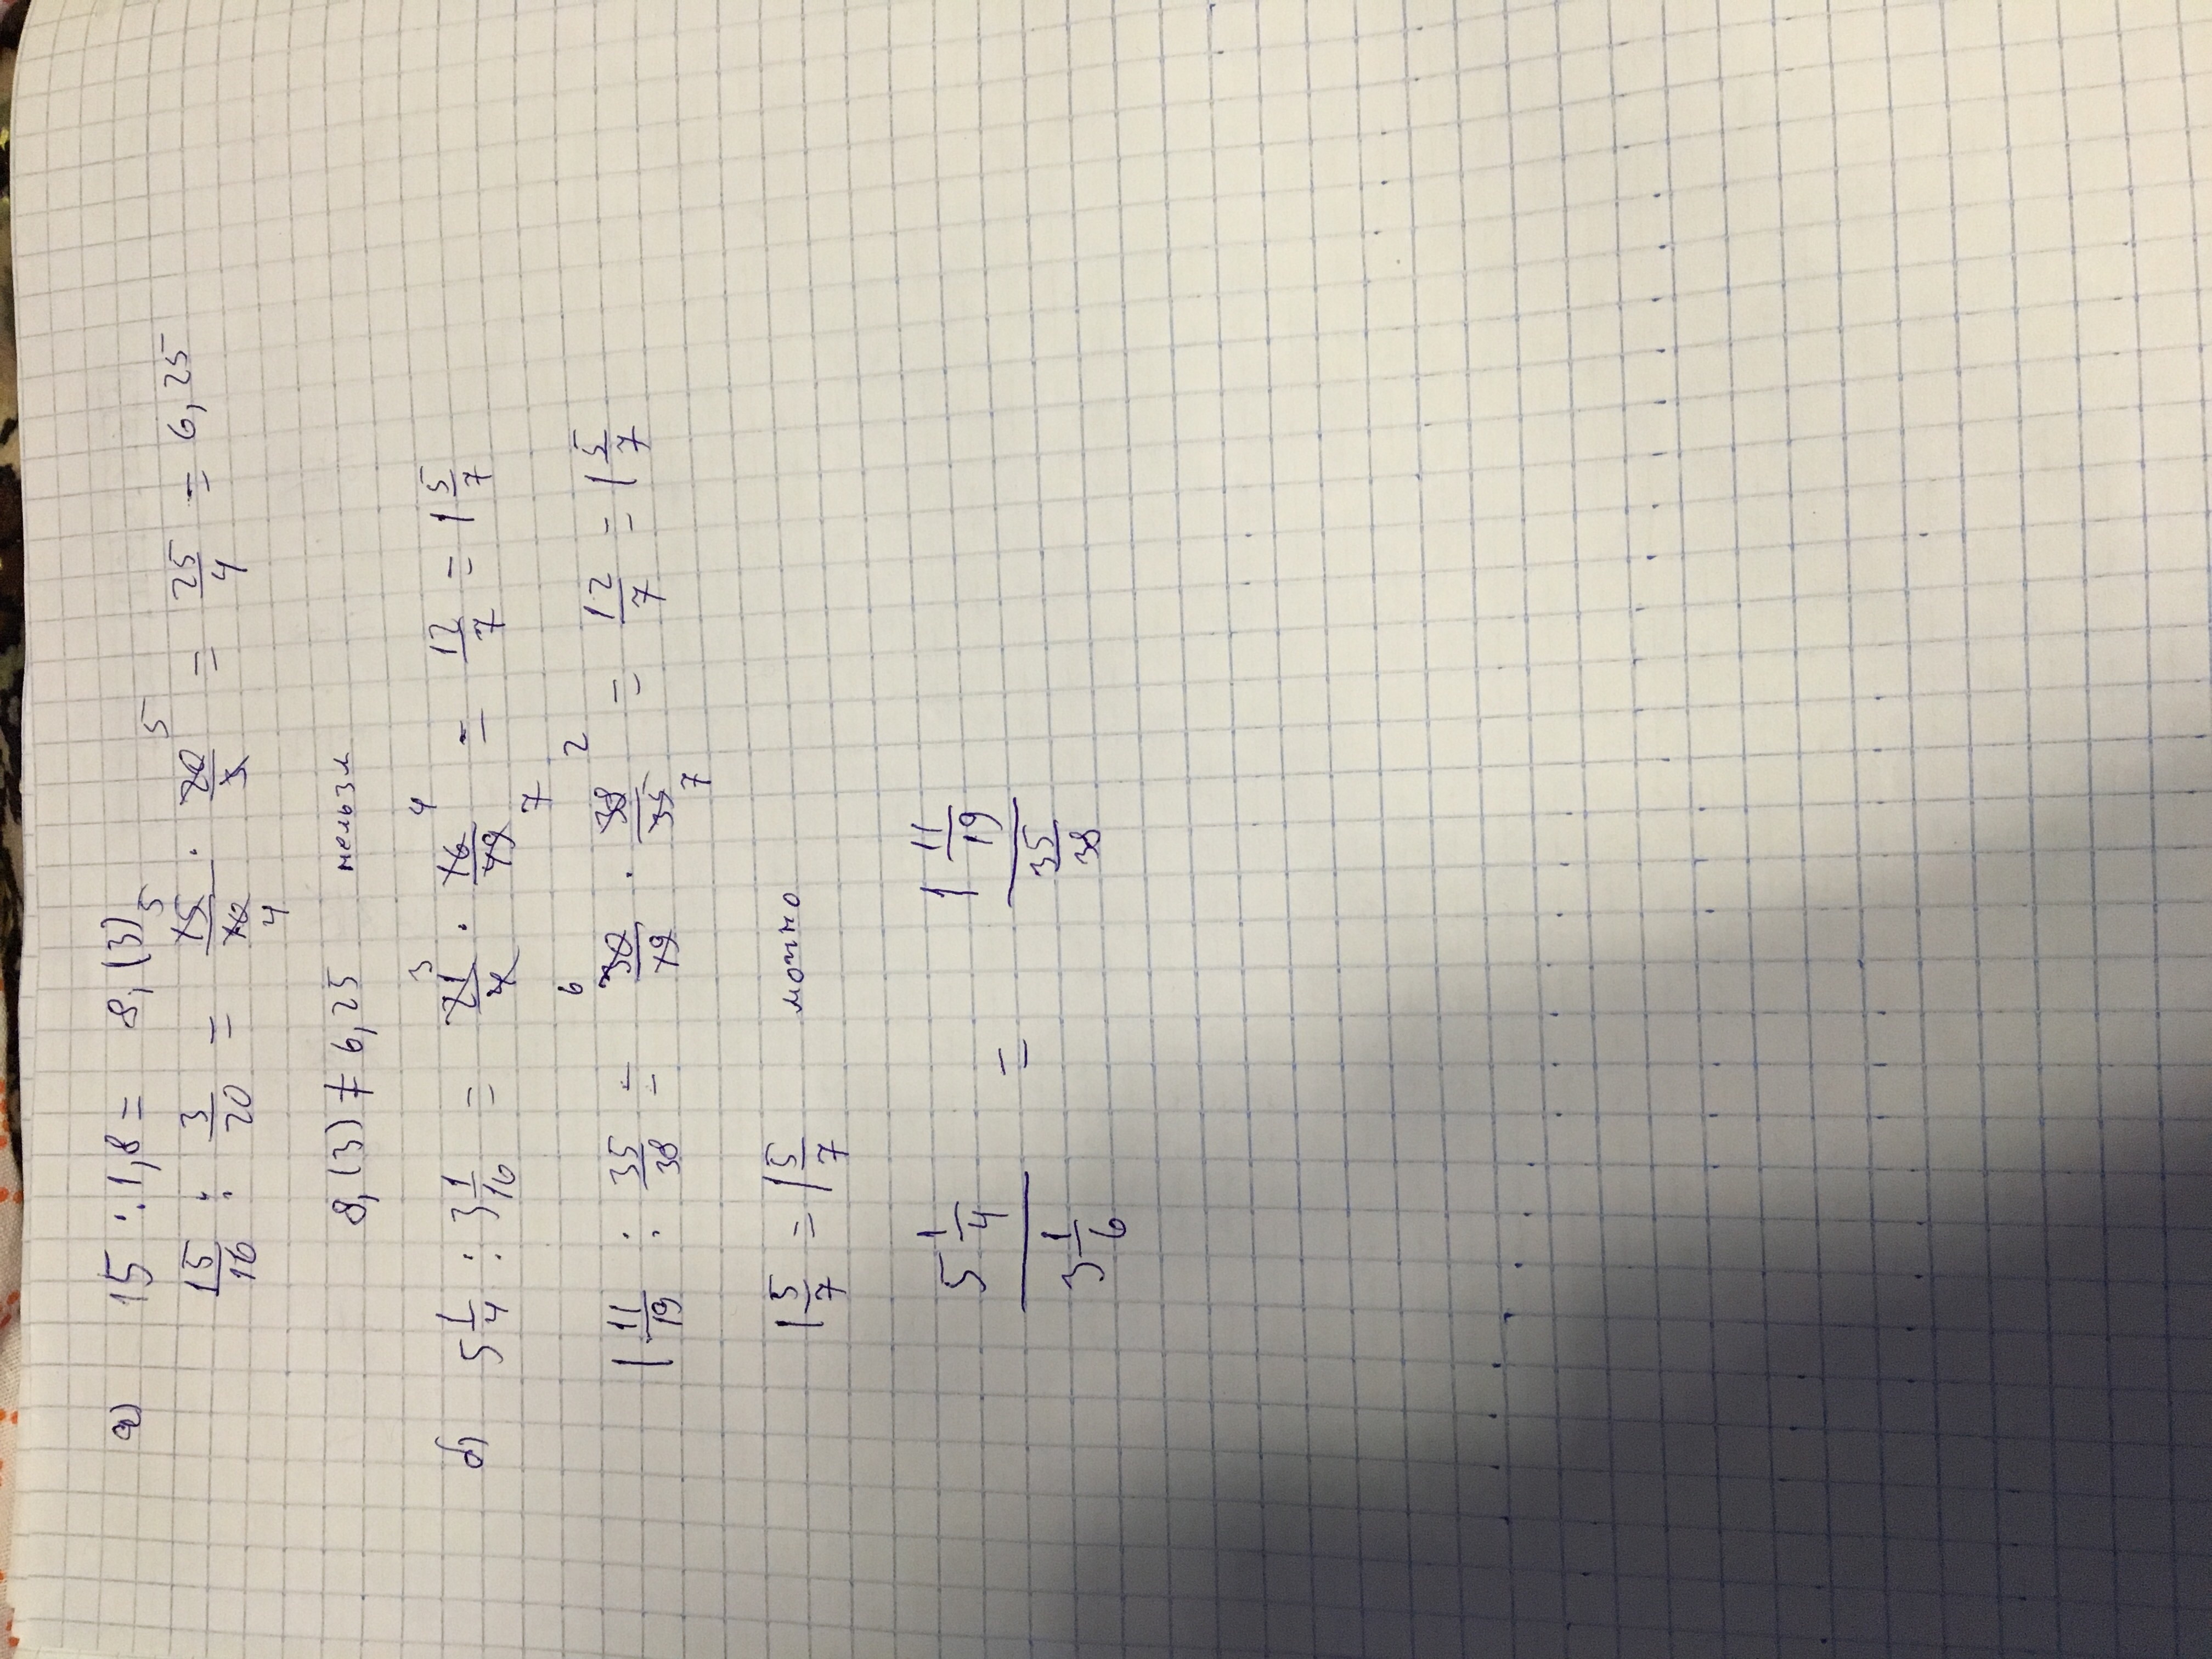 а) 15 : 1,8 = 8,(3)
15/16 : 3/20 = 15/16 · 20/3 = 25/4 = 6,25
5 5 4
8,(3) ≠ 6,25 нельзя
б) 5 1/4 : 3 1/16 = 21/4 · 16/49 = 12/7 = 1 5/7
3 4 7
1 11/19 : 35/38 = 30/19 · 38/35 = 12/7 = 1 5/7
6 2 7
1 5/7 = 1 5/7 можно
5 1/4 / 3 1/6 = 1 11/19 / 35/38